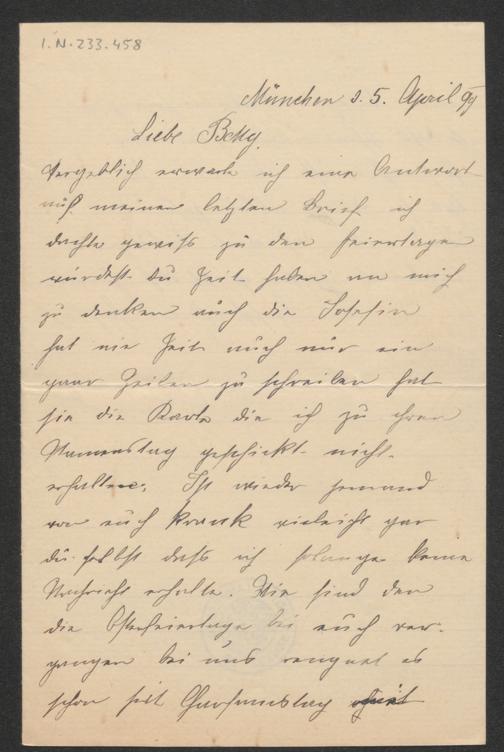 I.N. 233.458
München d. 5. April 99
Liebe Betty
Vergeblich erwarte ich eine Antwort
auf meinen letzten Brief ich
dachte gewiß zu den Feiertagen
würdest du Zeit haben an mich
zu denken auch die Josefin
hat nie Zeit auch nur ein
paar Zeilen zu schreiben hat
sie die Karte die ich zu ihren
Namenstag geschickt nicht
erhalten. Ist wieder jemand
von euch krank vieleicht gar
du selbst daß ich solange keine
Nachricht erhalte. Wie sind den
die Osterfeiertage bei euch ver-
gangen bei uns rengnet es
schon seit Charsamstag